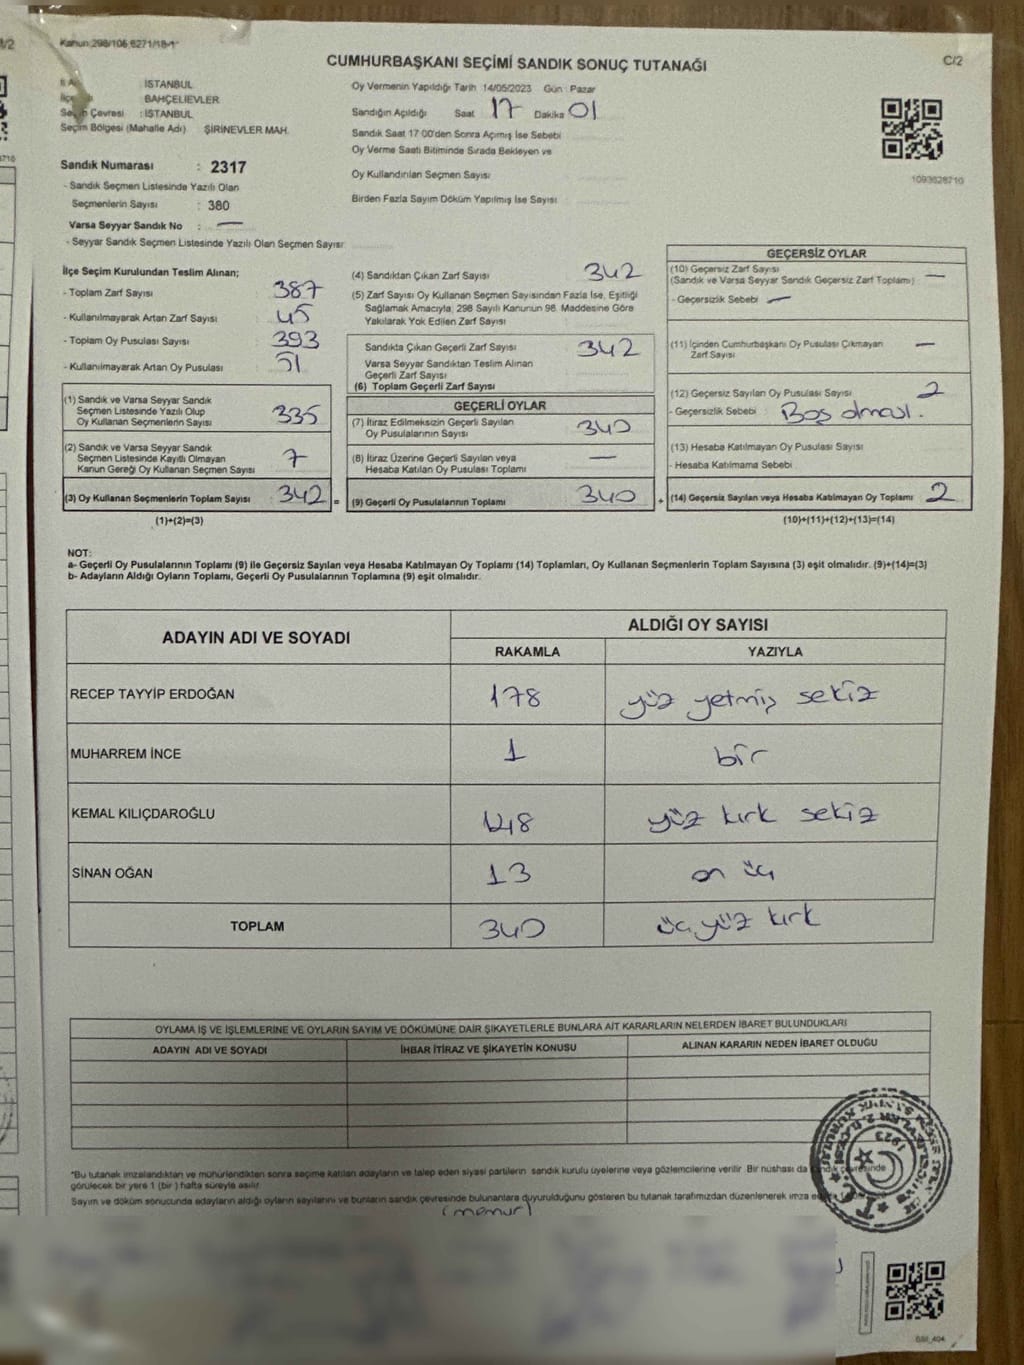 Kanun:298/106,6271/18-1
C/2
CUMHURBAŞKANI SEÇİMİ SANDIK SONUÇ TUTANAĞI
İSTANBUL
BAHÇELİEVLER
Seçim Çevresi : İSTANBUL
Seçim Bölgesi (Mahalle Adı) ŞİRİNEVLER MAH.
Oy Vermenin Yapıldığı Tarih 14/05/2023 Gün : Pazar
Sandığın Açıldığı Saat 17 Dakika 01
Sandık Saat 17:00'den Sonra Açılmış İse Sebebi
Oy Verme Saati Bitiminde Sırada Bekleyen ve
Oy Kullandırılan Seçmen Sayısı
Birden Fazla Sayım Döküm Yapılmış İse Sayısı
1093628710
Sandık Numarası : 2317
- Sandık Seçmen Listesinde Yazılı Olan
Seçmenlerin Sayısı : 380
Varsa Seyyar Sandık No : —
- Seyyar Sandık Seçmen Listesinde Yazılı Olan Seçmen Sayısı:
İlçe Seçim Kurulundan Teslim Alınan;
- Toplam Zarf Sayısı 387
- Kullanılmayarak Artan Zarf Sayısı 45
- Toplam Oy Pusulası Sayısı 393
- Kullanılmayarak Artan Oy Pusulası 51
(1) Sandık ve Varsa Seyyar Sandık
Seçmen Listesinde Yazılı Olup
Oy Kullanan Seçmenlerin Sayısı 335
(2) Sandık ve Varsa Seyyar Sandık
Seçmen Listesinde Kayıtlı Olmayan
Kanun Gereği Oy Kullanan Seçmen Sayısı 7
(3) Oy Kullanan Seçmenlerin Toplam Sayısı 342 =
(1)+(2)=(3)
(4) Sandıktan Çıkan Zarf Sayısı 342
(5) Zarf Sayısı Oy Kullanan Seçmen Sayısından Fazla İse, Eşitliği
Sağlamak Amacıyla, 298 Sayılı Kanunun 98. Maddesine Göre
Yakılarak Yok Edilen Zarf Sayısı
Sandıkta Çıkan Geçerli Zarf Sayısı 342
Varsa Seyyar Sandıktan Teslim Alınan
Geçerli Zarf Sayısı
(6) Toplam Geçerli Zarf Sayısı
GEÇERLİ OYLAR
(7) İtiraz Edilmeksizin Geçerli Sayılan
Oy Pusulalarının Sayısı 340
(8) İtiraz Üzerine Geçerli Sayılan veya
Hesaba Katılan Oy Pusulası Toplamı —
(9) Geçerli Oy Pusulalarının Toplamı 340 +
GEÇERSİZ OYLAR
(10) Geçersiz Zarf Sayısı
(Sandık ve Varsa Seyyar Sandık Geçersiz Zarf Toplamı) —
- Geçersizlik Sebebi —
(11) İçinden Cumhurbaşkanı Oy Pusulası Çıkmayan
Zarf Sayısı —
(12) Geçersiz Sayılan Oy Pusulası Sayısı 2
- Geçersizlik Sebebi : Boş olması.
(13) Hesaba Katılmayan Oy Pusulası Sayısı
- Hesaba Katılmama Sebebi
(14) Geçersiz Sayılan veya Hesaba Katılmayan Oy Toplamı 2
(10)+(11)+(12)+(13)=(14)
NOT:
a- Geçerli Oy Pusulalarının Toplamı (9) ile Geçersiz Sayılan veya Hesaba Katılmayan Oy Toplamı (14) Toplamları, Oy Kullanan Seçmenlerin Toplam Sayısına (3) eşit olmalıdır. (9)+(14)=(3)
b- Adayların Aldığı Oyların Toplamı, Geçerli Oy Pusulalarının Toplamına (9) eşit olmalıdır.
ADAYIN ADI VE SOYADI
ALDIĞI OY SAYISI
RAKAMLA YAZIYLA
RECEP TAYYİP ERDOĞAN 178 yüz yetmiş sekiz
MUHARREM İNCE 1 bir
KEMAL KILIÇDAROĞLU 148 yüz kırk sekiz
SİNAN OĞAN 13 on üç
TOPLAM 340 üç yüz kırk
OYLAMA İŞ VE İŞLEMLERİNE VE OYLARIN SAYIM VE DÖKÜMÜNE DAİR ŞİKAYETLERLE BUNLARA AİT KARARLARIN NELERDEN İBARET BULUNDUKLARI
ADAYIN ADI VE SOYADI İHBAR İTİRAZ VE ŞİKAYETİN KONUSU ALINAN KARARIN NEDEN İBARET OLDUĞU
*Bu tutanak imzalandıktan ve mühürlendikten sonra seçime katılan adayların ve talep eden siyasi partilerin sandık kurulu üyelerine veya gözlemcilerine verilir. Bir nüshası da sandık çevresinde
görülecek bir yere 1 (bir) hafta süreyle asılır.
Sayım ve döküm sonucunda adayların aldığı oyların sayılarını ve bunların sandık çevresinde bulunanlara duyurulduğunu gösteren bu tutanak tarafımızdan düzenlenerek imza
(memur)
1923
T.C.